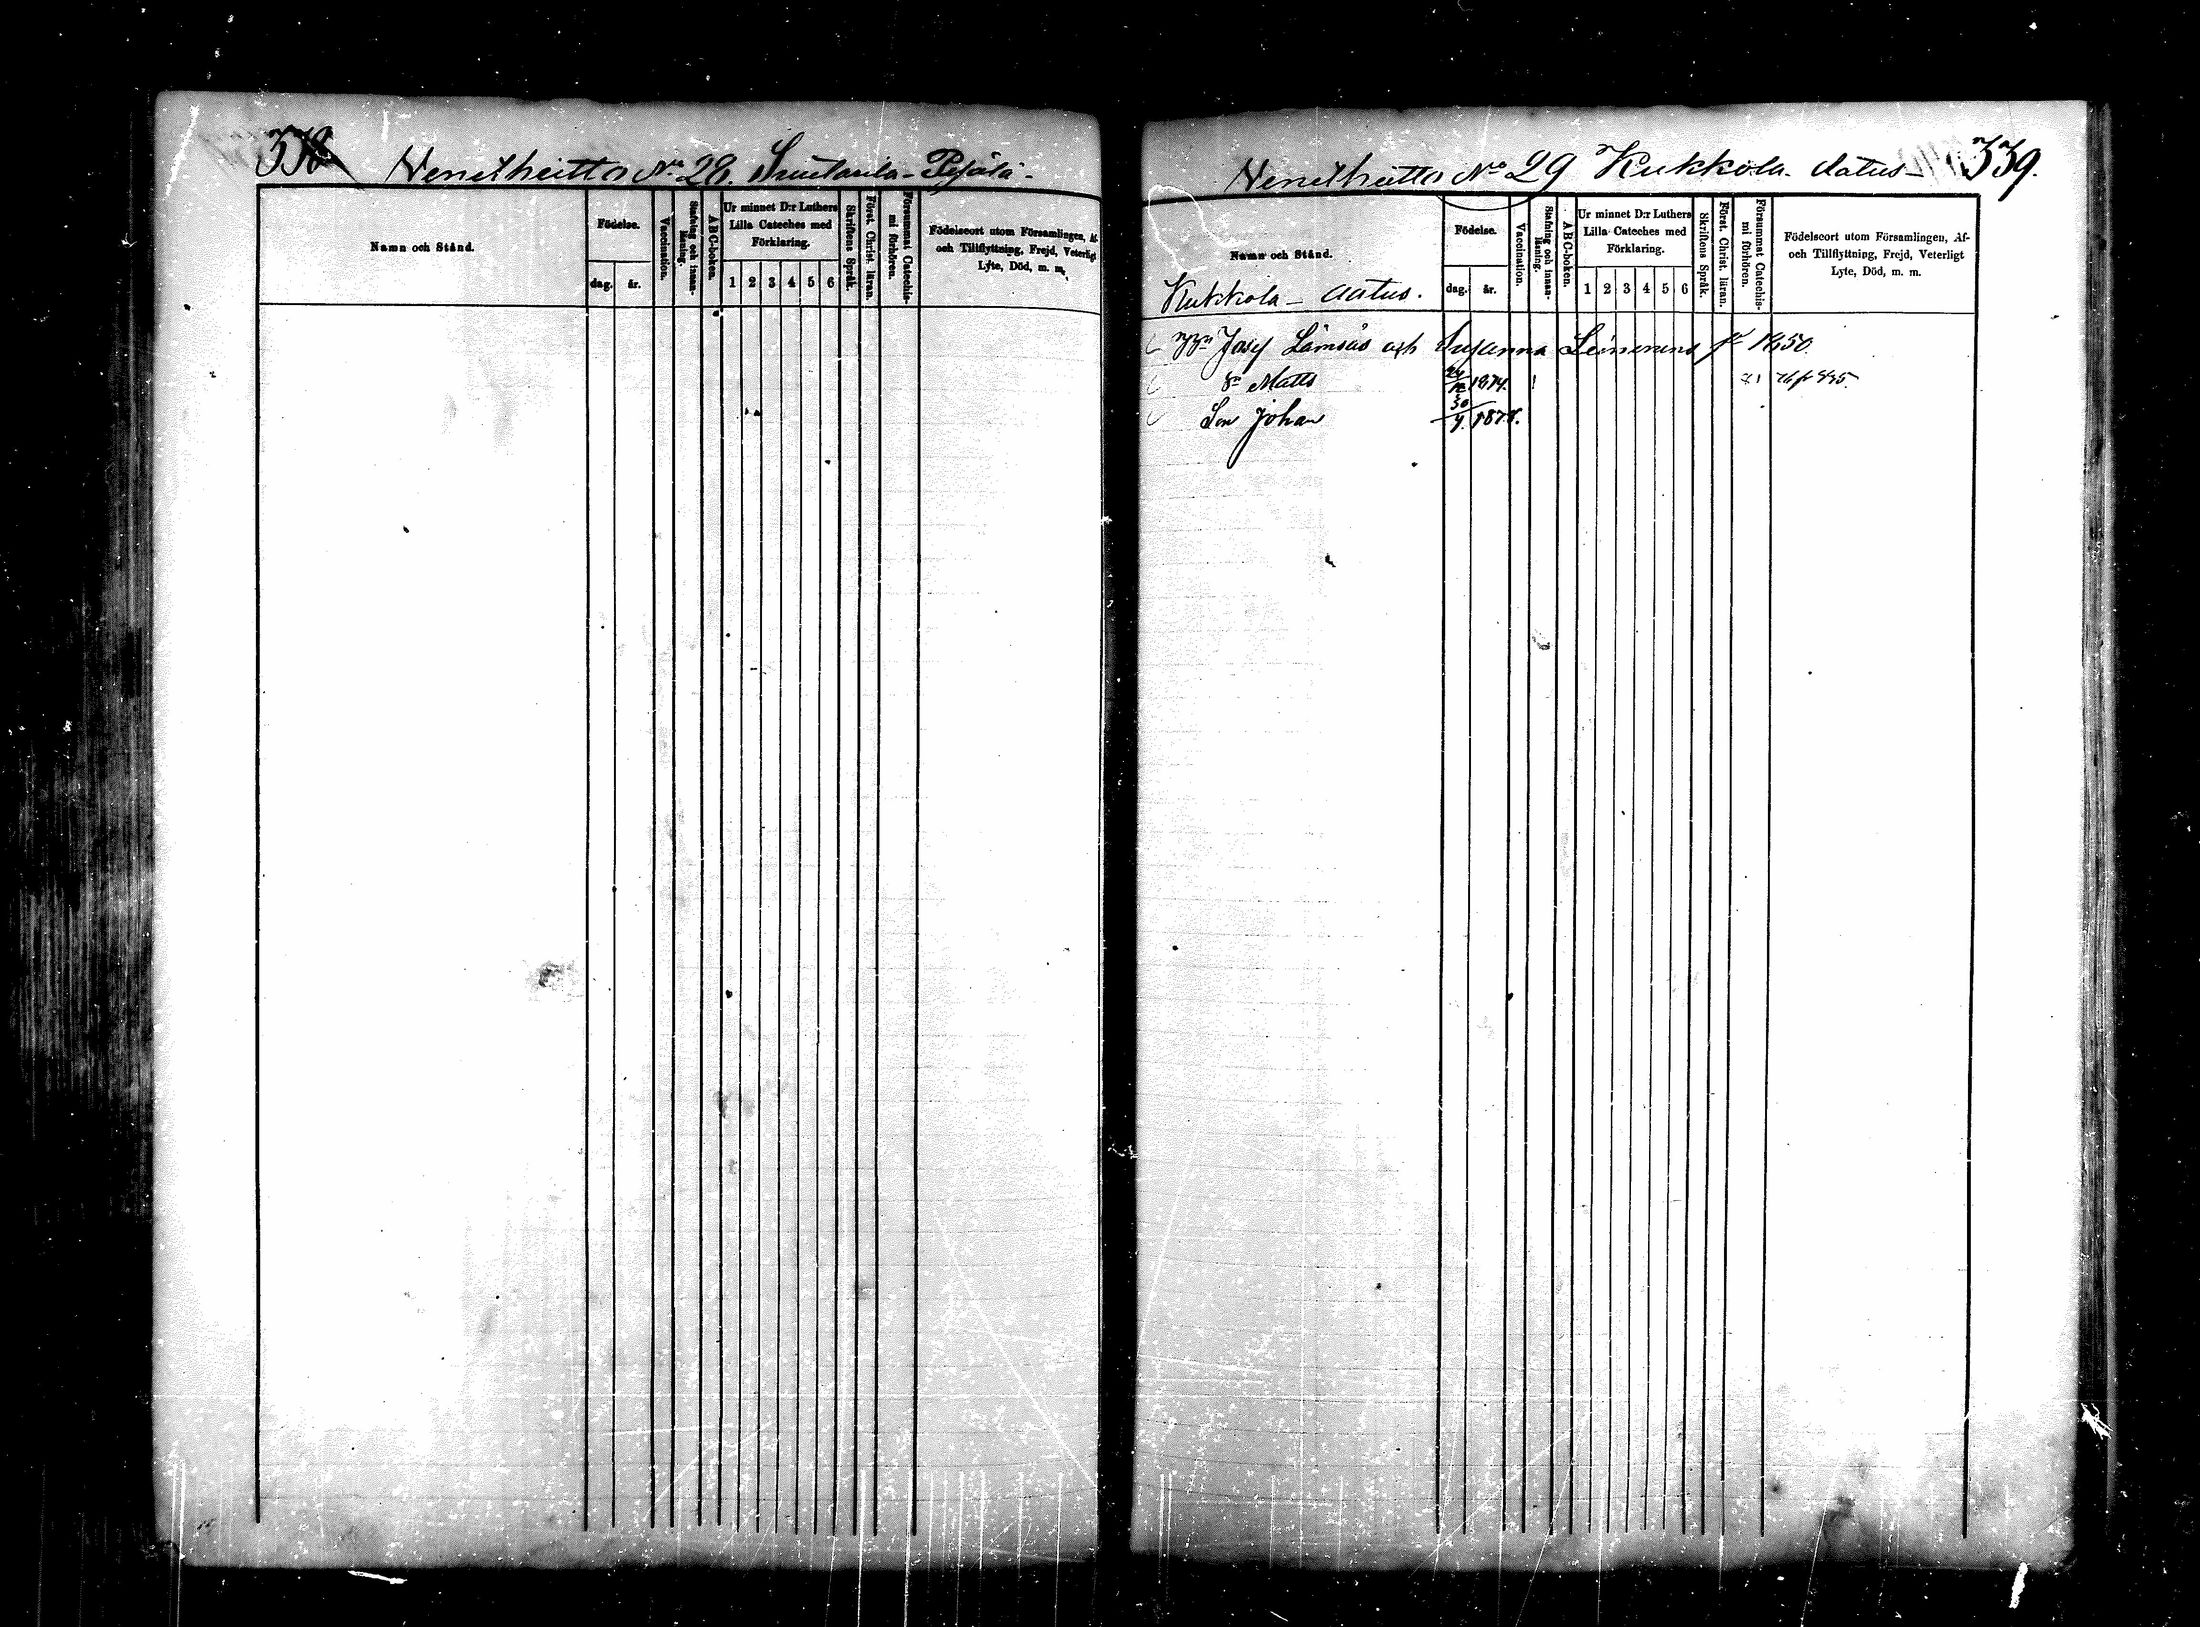 338
Venetheitto No 28. Suutarila - Pejälä -
Namn och Stånd.
Födelse.
dag. år.
Vaccination.
Stafning och innan-läsning.
ABC-boken.
Ur minnet D:r Luthers
Lilla Cateches med
Förklaring.
1 2 3 4 5 6
Skriftens Språk.
Först. Christ. läran.
Försummat Catechis-
mi förhören.
Födelseort utom Församlingen, Af-
och Tillflyttning, Frejd, Veterligt
Lyte, Död, m. m.
Venetheitto No 29 Kukkola - Aatus -
339.
Namn och Stånd.
Födelse.
dag. år.
Vaccination.
Stafning och innan-läsning.
ABC-boken.
Ur minnet D:r Luthers
Lilla Cateches med
Förklaring.
1 2 3 4 5 6
Skriftens Språk.
Först. Christ. läran.
Försummat Catechis-
mi förhören.
Födelseort utom Församlingen, Af-
och Tillflyttning, Frejd, Veterligt
Lyte, Död, m. m.
Kukkola - Aatus.
Josef Lämsäs och Susanna
Matts 1874.
Son Johan 30/9 1878.